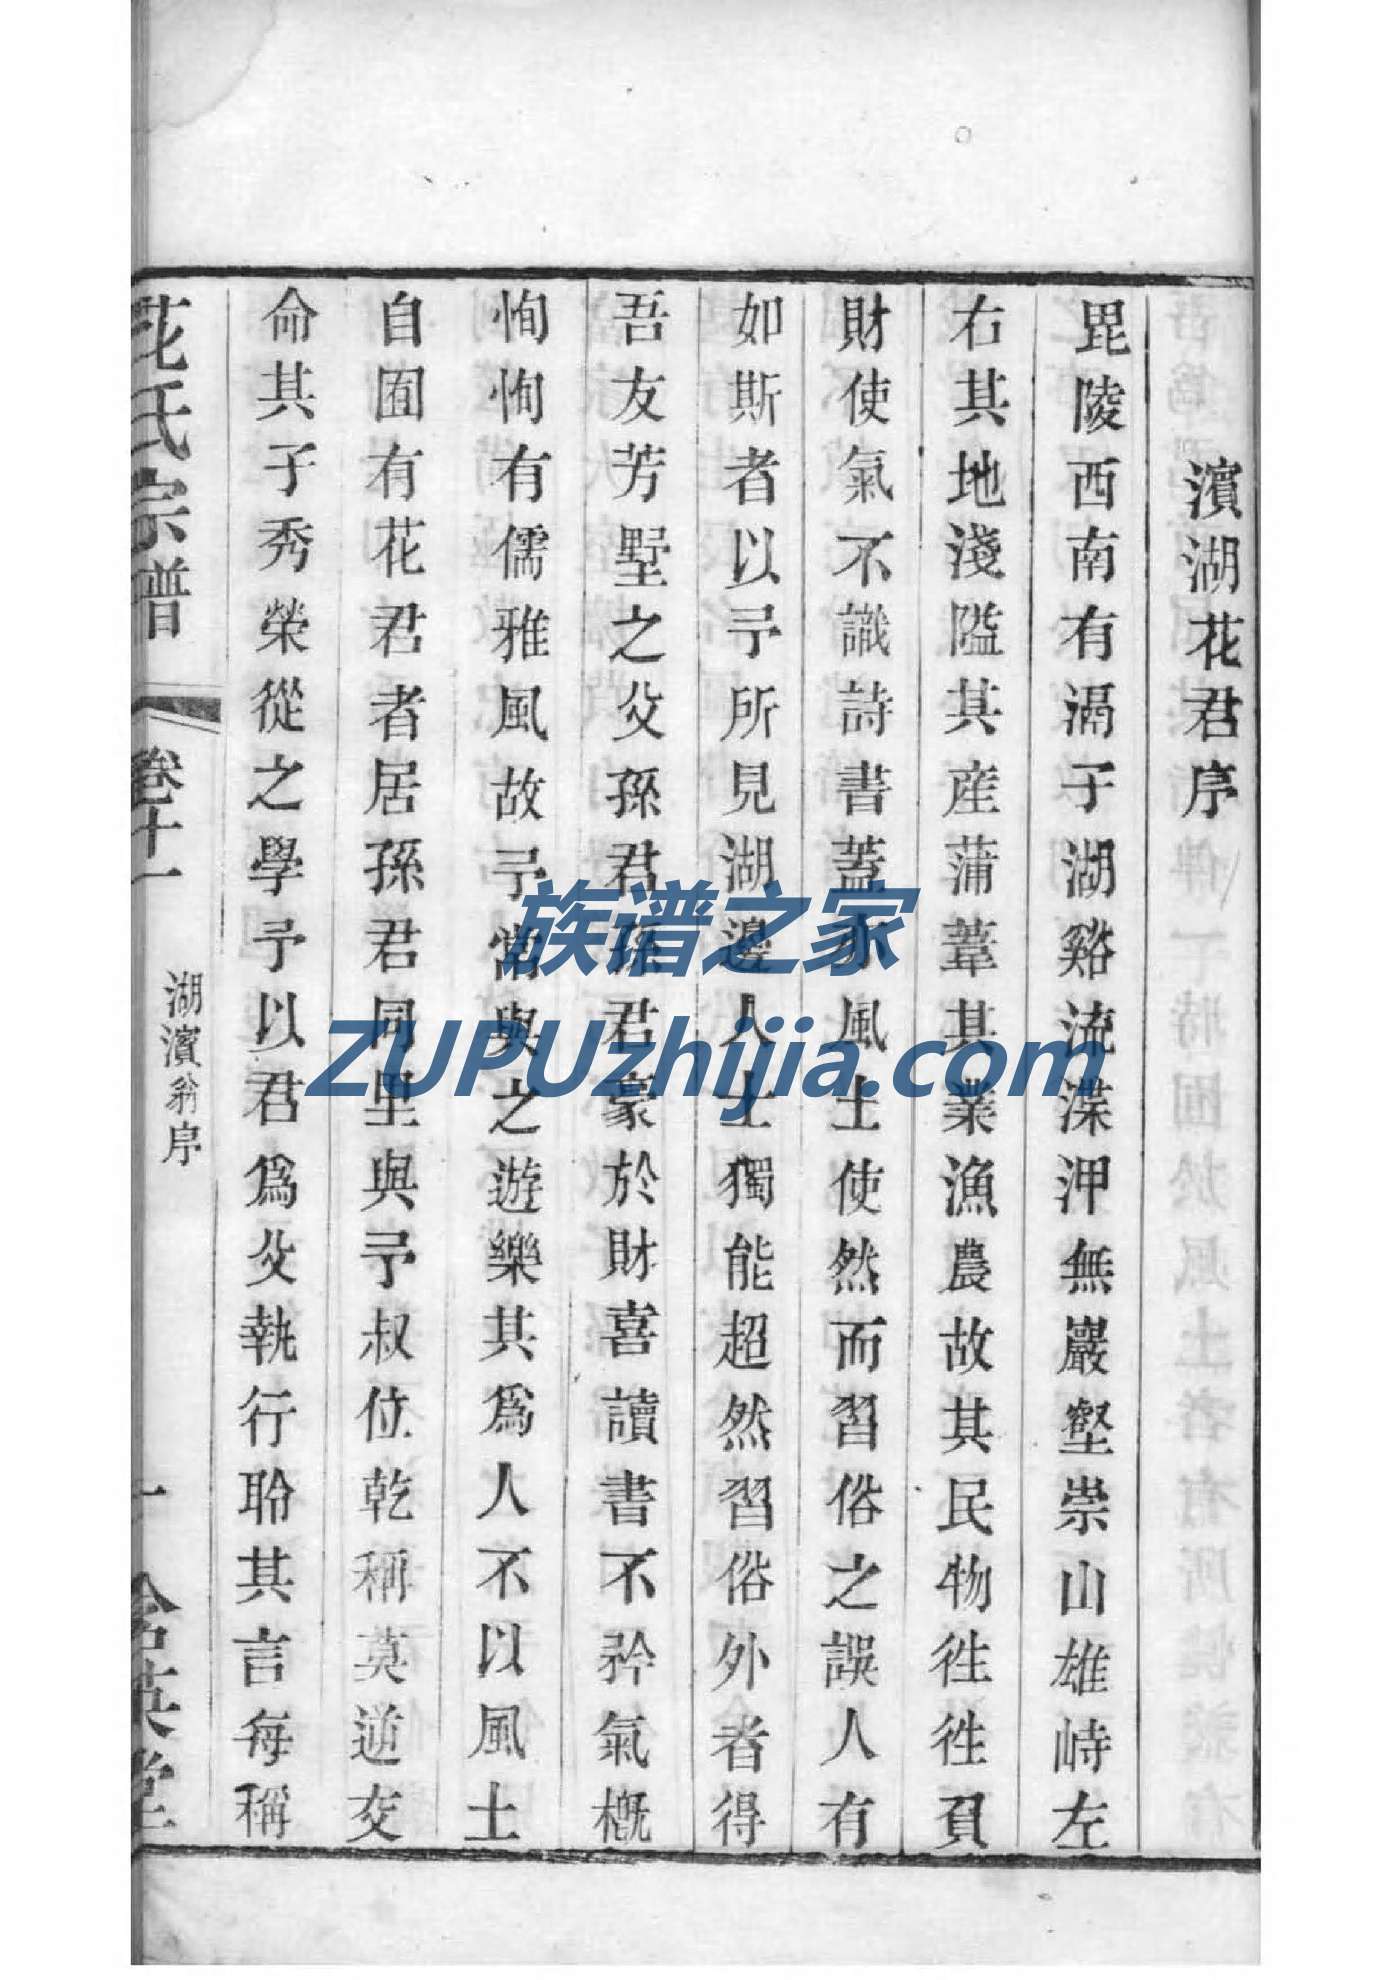 濱湖花君序
毘陵西南有滆子湖谿流渫泙無巖壑崇山雄峙左
右其地淺隘其産蒲葦其業漁農故其民物徃徃負
財使氣不識詩書蓋水風土使然而習俗之誤人有
如斯者以予所見湖邊人士獨能超然習俗外者得
吾友芳墅之父孫君孫君豪於財喜讀書不矜氣概
恂恂有儒雅風故予常與之遊樂其爲人不以風土
自囿有花君者居孫君同里與予叔位乾稱莫逆交
命其子秀榮從之學予以君爲父執行聆其言每稱
花氏宗譜
卷十一
湖濱翁序
一
含英堂
族谱之家
ZUPUzhijia.com